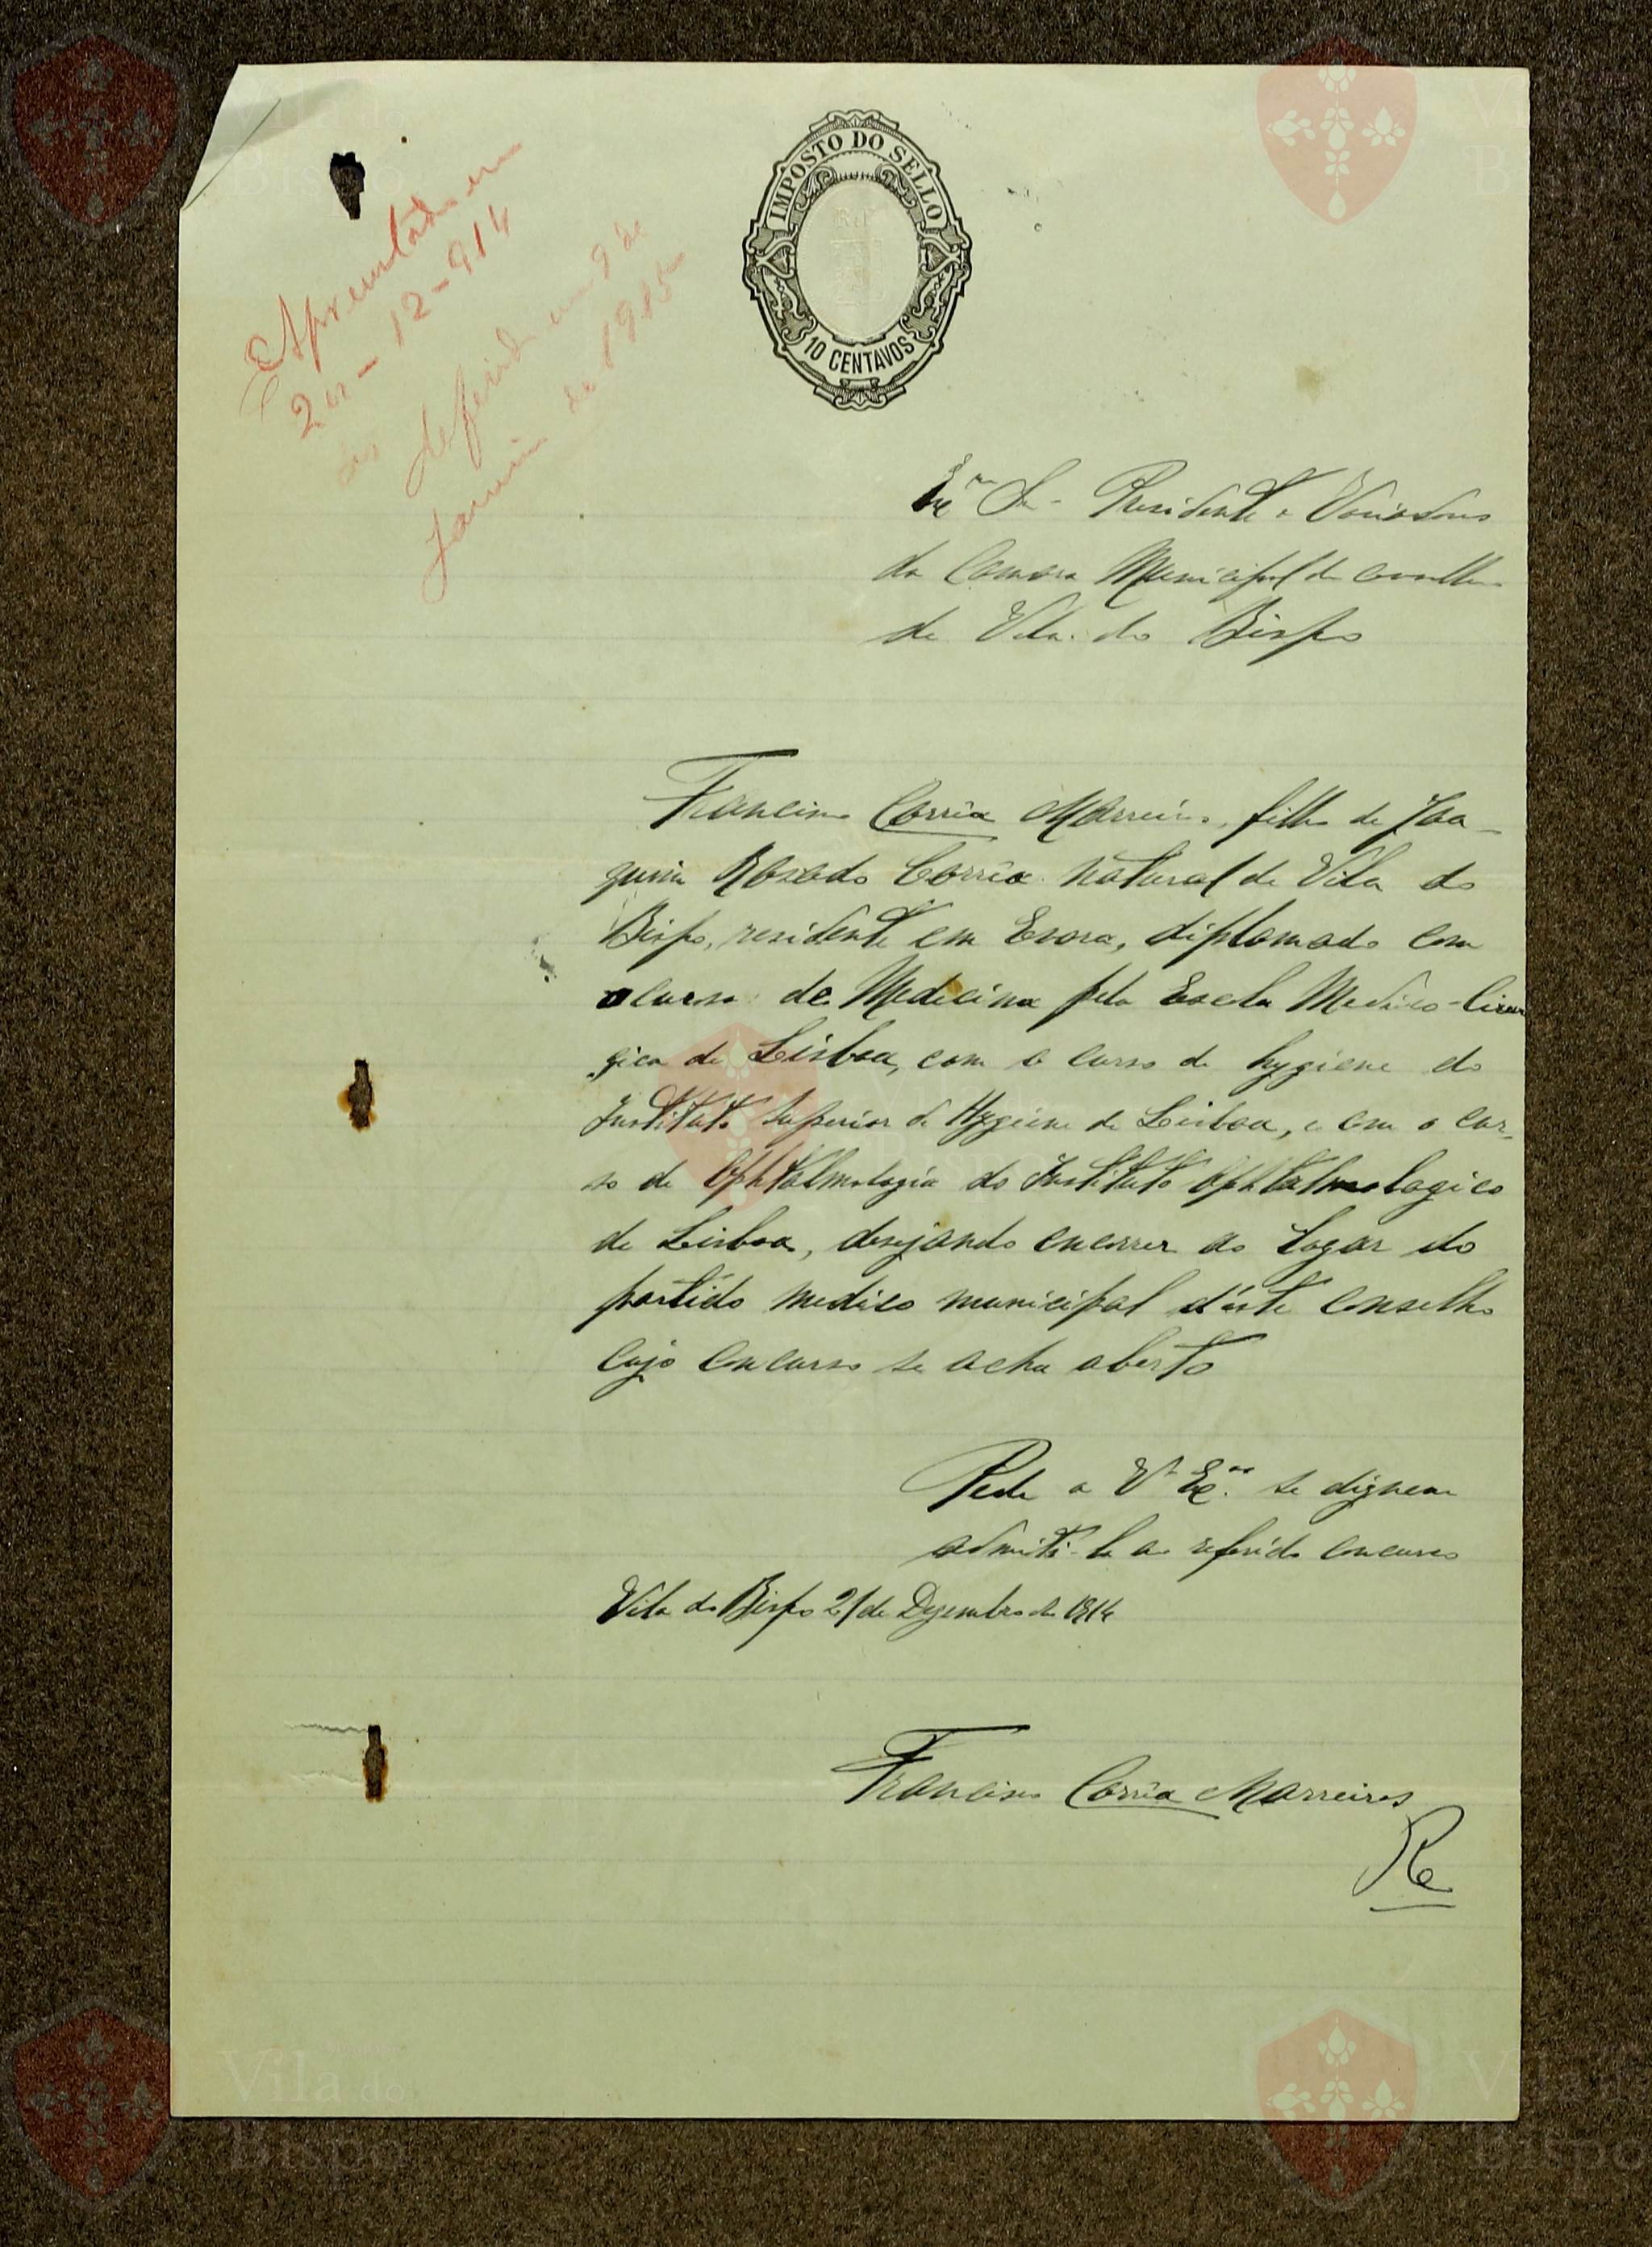 IMPOSTO DO SELLO
10 CENTAVOS
Apresentado em
12-914
deferido em 9 de
Janeiro de 1915
Exmo Sr. Presidente e Vereadores
da Camara Municipal do concelho
de Vila do Bispo
Francisco Corrêa Marreiros, filho de Joa-
quim Rosado Corrêa natural de Vila do
Bispo, residente em Evora, diplomado com
o curso de Medicina pela Escola Medico-Cirur
gica de Lisboa, com o curso de hygiene do
Instituto Superior de Hygiene de Lisboa, e com o cur-
so de Ophtalmologia do Instituto Ophtalmologico
de Lisboa, desejando concorrer ao logar do
partido medico municipal d'êste conselho
cujo concurso se acha aberto
Pede a Vas Exas. se dignem
admiti-lo ao referido concurso
Vila do Bispo 21 de Dezembro de 1914
Francisco Corrêa Marreiros
Vila do
Bispo